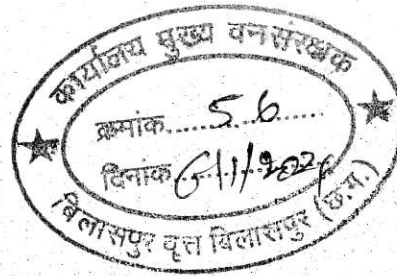 कार्यालय मुख्य वनसंरक्षक
क्रमांक.....56
दिनांक 6/1/202
बिलासपुर वृत्त बिलासपुर (छ.ग.)